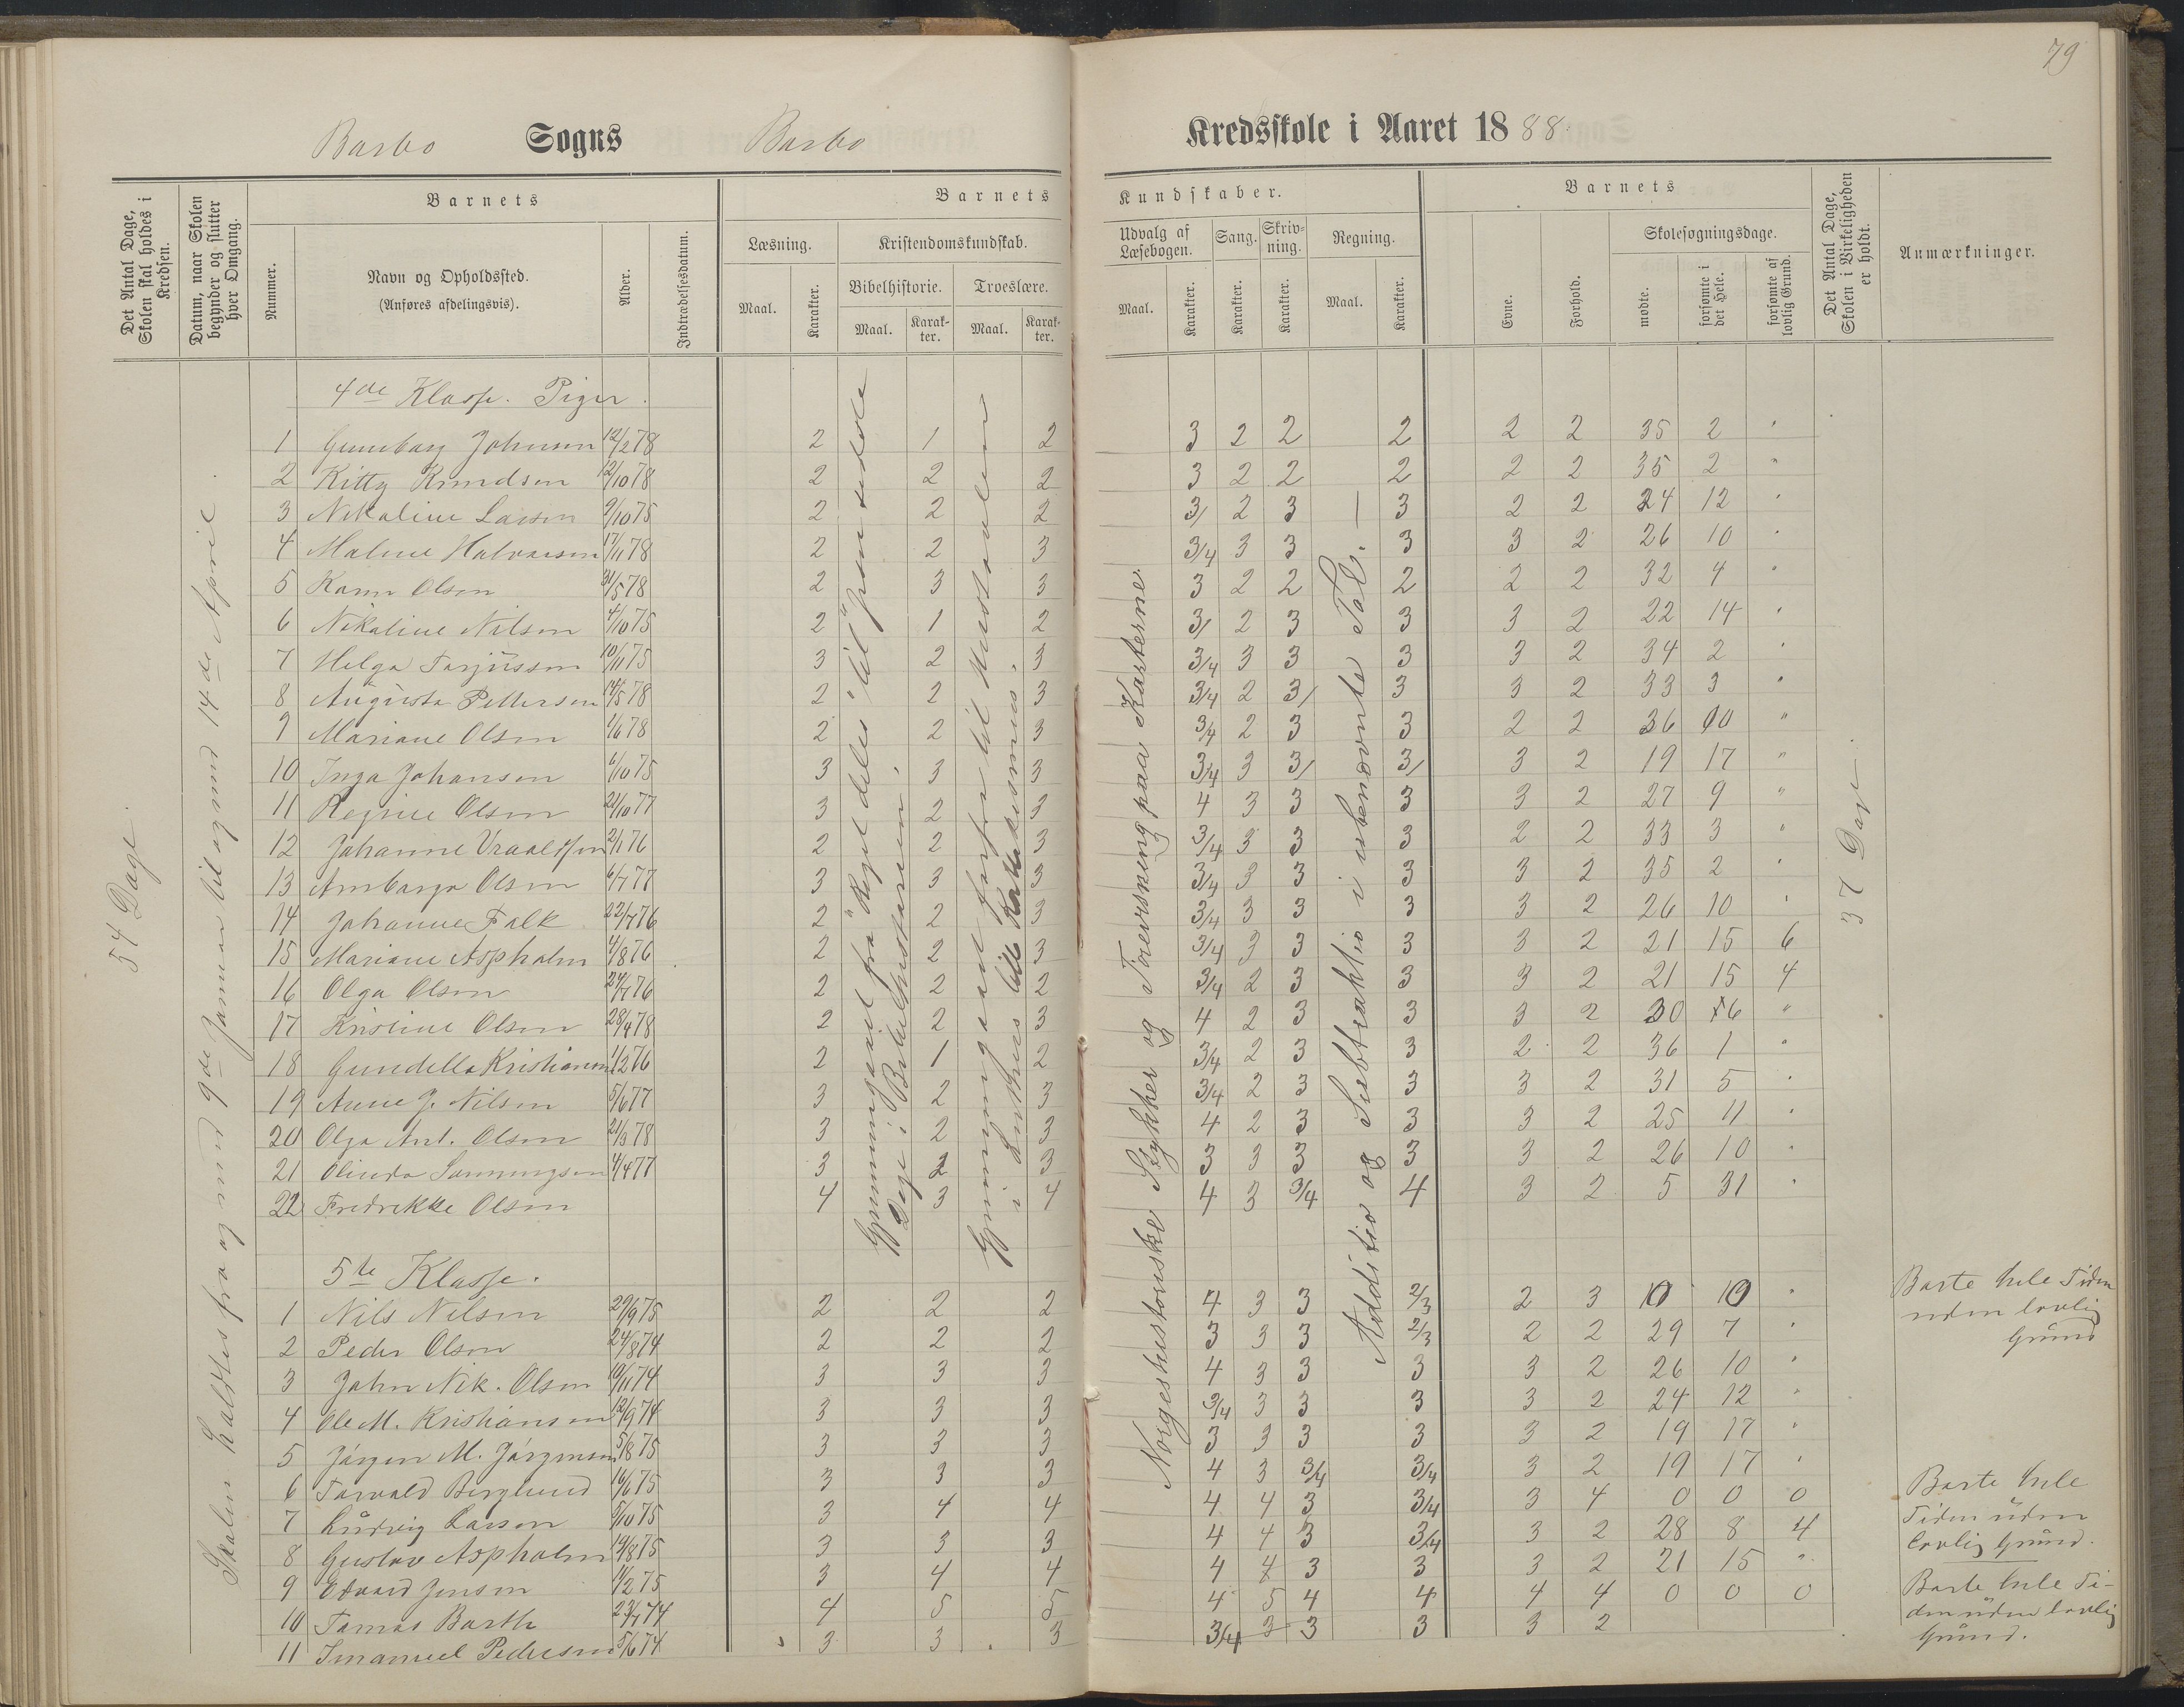 79
Barbo Sogns Barbo Kredsskole i Aaret 1888.
Det Antal Dage, Skolen skal holdes i Kredsen.
Datum, naar Skolen begynder og slutter hver Omgang.
Barnets
Nummer.
Navn og Opholdssted.
(Anføres afdelingsvis).
Alder.
Indtrædelsesdatum.
Barnets Kundskaber.
Læsning.
Maal. Karakter.
Kristendomskundskab.
Bibelhistorie. Troeslære.
Maal. Karakter. Maal. Karakter.
Udvalg af Læsebogen.
Maal. Karakter.
Sang.
Karakter.
Skrivning.
Karakter.
Regning.
Maal. Karakter.
Barnets
Evne. Forhold.
Skolesøgningsdage.
mødte. forsømte i det Hele. forsømte af lovlig Grund.
Det Antal Dage, Skolen i Virkeligheden er holdt.
Anmærkninger.
54 Dage.
Skolen holdtes fra og med 9de Januar til og med 14de April.
Gjennemgaaet fra "Røget deles" til
Dage i Bibelhistorien.
Gjennemgaaet forfra til
i Luthers lille Katekismus.
Norgeshistoriske Stykker og Øverskeng paa Karterne
Additio og Subtraktio i ubenævnte Tal. —
37 Dage.
4de Klasse. Piger.
1 Gunnborg Johnsen 12/2 78 2 1 2 3 2 2 2 2 2 35 2 "
2 Kitty Knudsen 12/10 78 2 2 2 3 2 2 2 2 2 35 2 "
3 Nikoline Larsen 9/10 75 2 2 2 3/ 2 3 3 2 2 24 12 "
4 Maline Halvorsen 17/11 78 2 2 3 3/4 3 3 3 3 2 26 10 "
5 Karen Olsen 31/5 78 2 3 3 3 2 2 2 2 2 32 4 "
6 Nikoline Nilsen 4/10 75 2 1 2 3/ 2 3 3 3 2 22 14 "
7 Helga Torjussen 10/11 75 3 2 3 3/4 3 3 3 3 2 34 2 "
8 Augusta Pettersen 14/5 78 2 2 3 3/4 2 3/ 3 3 2 33 3 "
9 Mariane Olsen 1/6 78 2 2 3 3/4 2 3 3 2 2 36 0 "
10 Inga Johansen 6/10 75 3 3 3 3/4 3 3/ 3/ 3 2 19 17 "
11 Regine Olsen 21/10 77 3 2 3 4 3 3 3 3 2 27 9 "
12 Johanne Vraalsen 2/1 76 2 2 3 3/4 3 3 3 2 2 33 3 "
13 Annbarga Olsen 6/7 77 3 3 3 3/4 3 3 3 3 2 35 2 "
14 Johanne Falk 22/7 76 2 2 3 3/4 3 3 3 3 2 26 10 "
15 Mariane Aspholm 4/8 76 2 2 3 3/4 3 3 3 3 2 21 15 6
16 Olga Olsen 24/7 76 2 2 2 3/4 2 3 3 3 2 21 15 4
17 Kristine Olsen 28/4 78 2 2 3 4 2 3 3 3 2 30 6 "
18 Gundella Kristiansen 1/2 76 2 1 2 3/4 2 3 3 2 2 36 1 "
19 Anne J. Nilsen 5/6 77 3 2 3 3/4 2 3 3 3 2 31 5 "
20 Olga Ant. Olsen 21/3 78 3 2 3 4 2 3 3 3 2 25 11 "
21 Olinda Sønningsen 4/4 77 3 2 3 3 3 3 3 3 2 26 10 "
22 Fredrikke Olsen 4 3 4 4 3 3/4 4 3 2 5 31 "
5te Klasse.
1 Nils Nilsen 29/9 75 2 2 2 4 3 3 2/3 2 3 10 10 " Borte hele Tiden uden lovlig Grund
2 Peder Olsen 24/8 74 2 2 2 3 3 3 2/3 2 2 29 7 "
3 John Nik. Olsen 10/11 74 3 3 3 4 3 3 3 3 2 26 10 "
4 Ole M. Kristiansen 12/9 74 3 3 3 3/4 3 3 3 3 2 24 12 "
5 Jørgen M. Jørgensen 5/8 75 3 3 3 3 3 3 3 3 2 19 17 "
6 Torvald Berglund 16/6 75 3 3 3 4 3 3/4 3/4 3 2 19 17 "
7 Ludvig Larsen 5/10 75 3 4 4 4 4 3 3/4 3 4 0 0 0 Borte hele Tiden uden lovlig Grund.
8 Gustav Aspholm 14/8 75 3 3 3 4 4 3 3/4 3 2 28 8 4
9 Edvard Jensen 11/2 75 3 4 4 4 4 3 3 3 2 21 15 "
10 Tomas Barth 23/7 74 4 5 5 4 5 4 4 4 4 0 0 0 Borte hele Tiden uden lovlig Grund.
11 Imanuel Pedersen 5/6 74 3 3 3 3/4 3 3 3 3 2